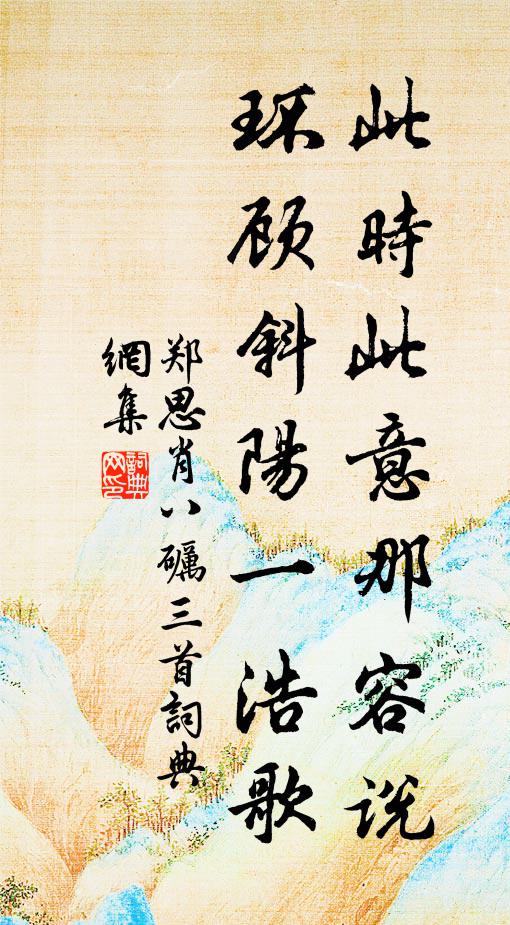 此時此意那容說
环顾斜陽一浩歌
郑思肖八礪三首詞典
網集
詞典
网印